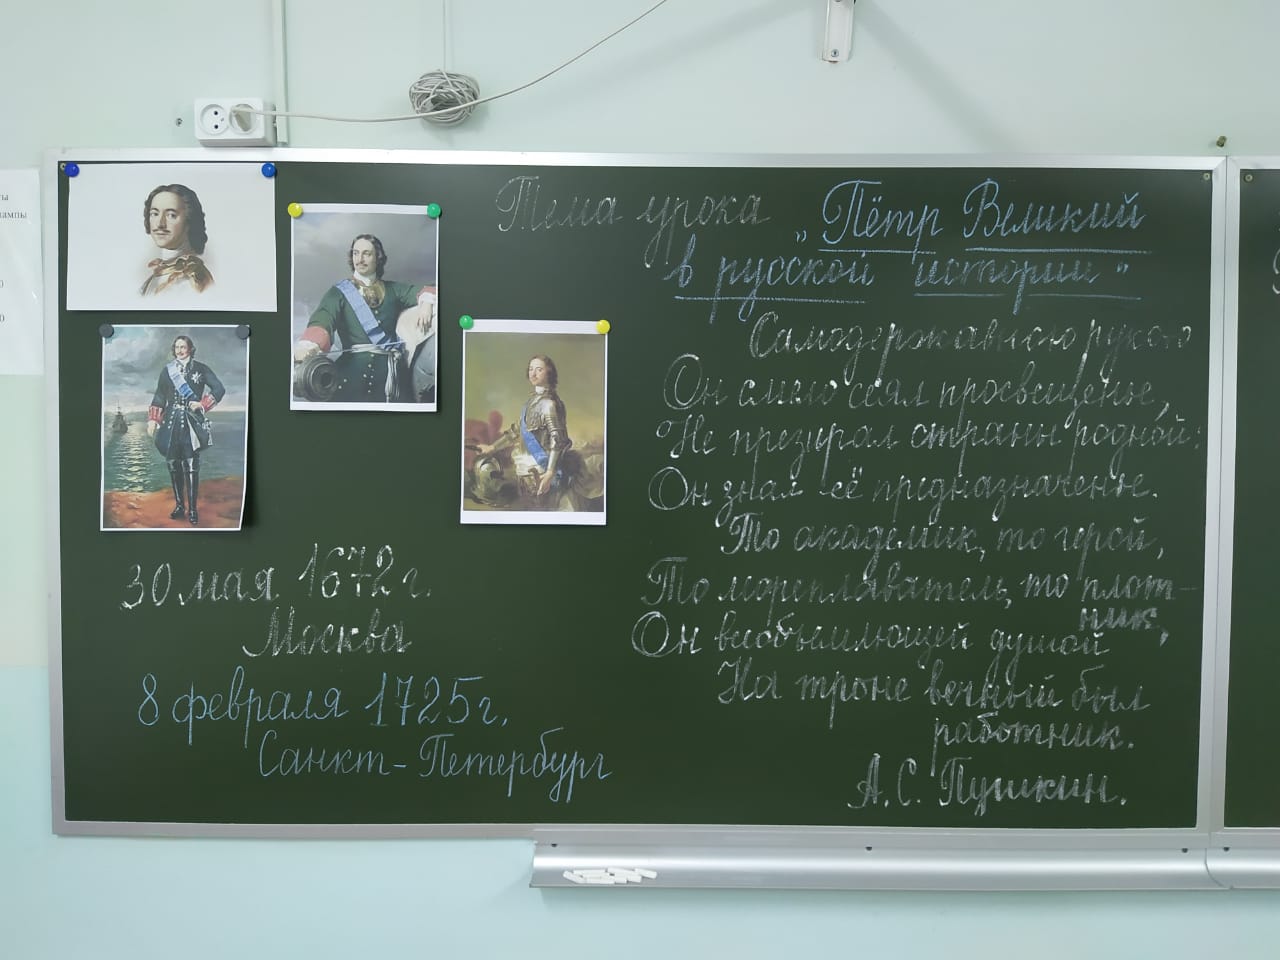 Тема урока „Пётр Великий
в русской истории"
Самодержавною рукою
Он смело сеял просвещенье,
Не презирал страны родной:
Он знал её предназначенье.
То академик, то герой,
То мореплаватель, то плот-
ник,
Он всеобъемлющей душой
На троне вечный был
работник.
А.С. Пушкин.
30 мая 1672 г.
Москва
8 февраля 1725 г.
Санкт-Петербург
ты
лампы
0
0